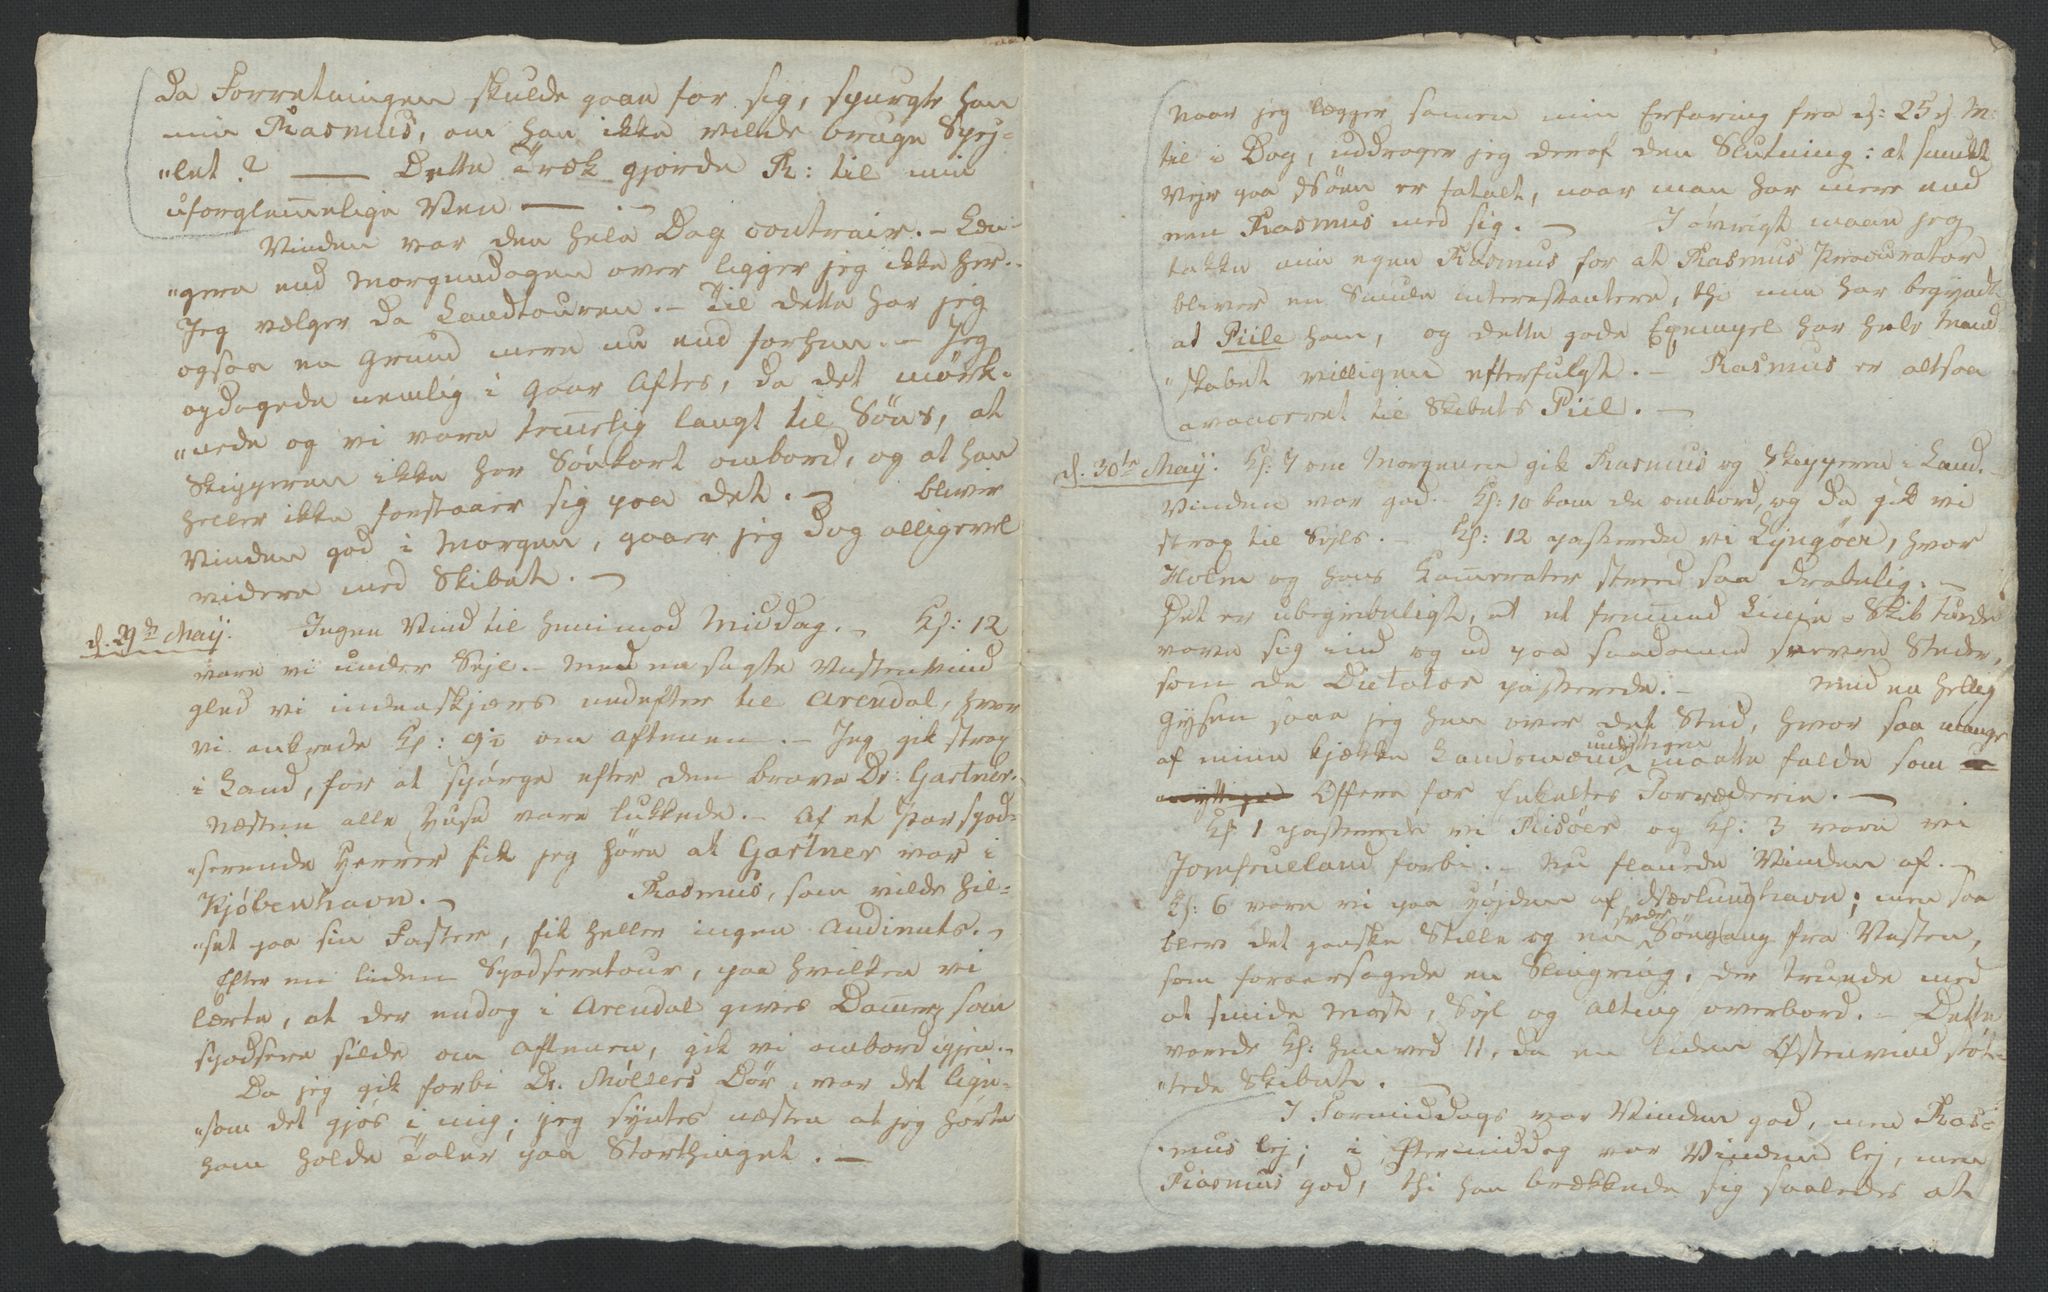 Da Forretningen skulde gaae for sig, spurgte han
min Rasmus, om han ikke vilde bruge Spej-
"let? — Dette Træk gjorde R: til min
uforglem̅elige Ven —
Vinden var den hele Dag contrair. — Læn-
"gere end Morgendagen over ligger jeg ikke her. -
Jeg vælger da Landtouren. — Til dette har jeg
ogsaa en Grund mere nu end forhen. — Jeg
opdagede nemlig i Gaar Aftes, da det mörk-
"nede og vi vare tem̅elig langt til Söes, at
Skipperen ikke har Sönkort ombord, og at han
heller ikke forstaaer sig paa det. — bliver
Vinden god i Morgen, gaaer jeg dog alligevel
videre med Skibet. —
d. 29de May. Ingen Vind til henimod Middag. — Kl: 12
vare vi under Sejl. — Med en sagte Vestenvind
gled vi indenskjærs nedefter til Arendal, hvor
vi ankrede Kl: 9½ om Aftenen. — Jeg gik strax
i Land, for at spörge efter den brave Dr: Gartner.
Næsten alle Huse vare lukkede. — Af et Par spad-
"serende Herrer fik jeg höre at Gartner var i
Kjöbenhavn. — Rasmus, som vilde hil-
"set paa sin Faster, fik heller ingen Audients. —
Efter en liden Spadseretour, paa hvilken vi
lærte, at der endog i Arendal gives Dam̅er, som
spadsere silde om Aftenen, gik vi ombord igjen. —
Da jeg gik forbi Dr. Möllers Dör, var det lige-
"som det gjös i mig; jeg syntes næsten at jeg hörte
ham holde Taler paa Storthinget. —
Naar jeg lægger samen min Erfaring fra d: 25 d. M:
til i Dag, uddrager jeg deraf den Slutning: at smukt
Vejr paa Söen er fatalt, naar man har mere end
een Rasmus med sig. — I övrigt maae jeg
takke min egen Rasmus for at Rasmus Procurator
bliver en Smule interessantere, thi min har begyndt
at Piile ham, og dette gode Exempel har hele Mand-
"skabet villigen efterfulgt. — Rasmus er altsaa
avanceret til Skibets Piil. —
d. 30te May. Kl: 7 om Morgenen gik Rasmus og Skipperen i Land.
Vinden var god. Kl: 10 kom de ombord, og da gik vi
strax til Sejls. — Kl: 12 passerede vi Lyngöer, hvor
Holm og hans Kam̅erater streed saa drabelig. —
Det er ubegribeligt, at et frem̅ed Linie-Skib turde
vove sig ind og ud paa saadanne snevre Steder,
som de Dictator passerede. — Med en hellig
Gysen saae jeg hen over det Sted, hvor saa mange
af mine kjække Landsmænd maatte falde som
Offere for Forræderie. —
Kl 1 passerede vi Risöer og Kl: 3 vare vi
Jomfrueland forbi. — Nu flauede Vinden af. —
Kl: 6 vare vi paa Höjden af Nevlunghavn; men saa
blev det ganske Stille og en svær Söegang fra Vesten,
som foraarsagede en Slingring, der truede med
at smide Mast, Sejl og Alting overbord. — Dette
varede Kl: henved 11, da en liden Østenvind stöt-
"tede Skibet. —
I Formiddags var Vinden god, men Ras-
"mus lej; i Eftermiddag var Vinden lej, men
Rasmus god, thi han brækkede sig saaledes at